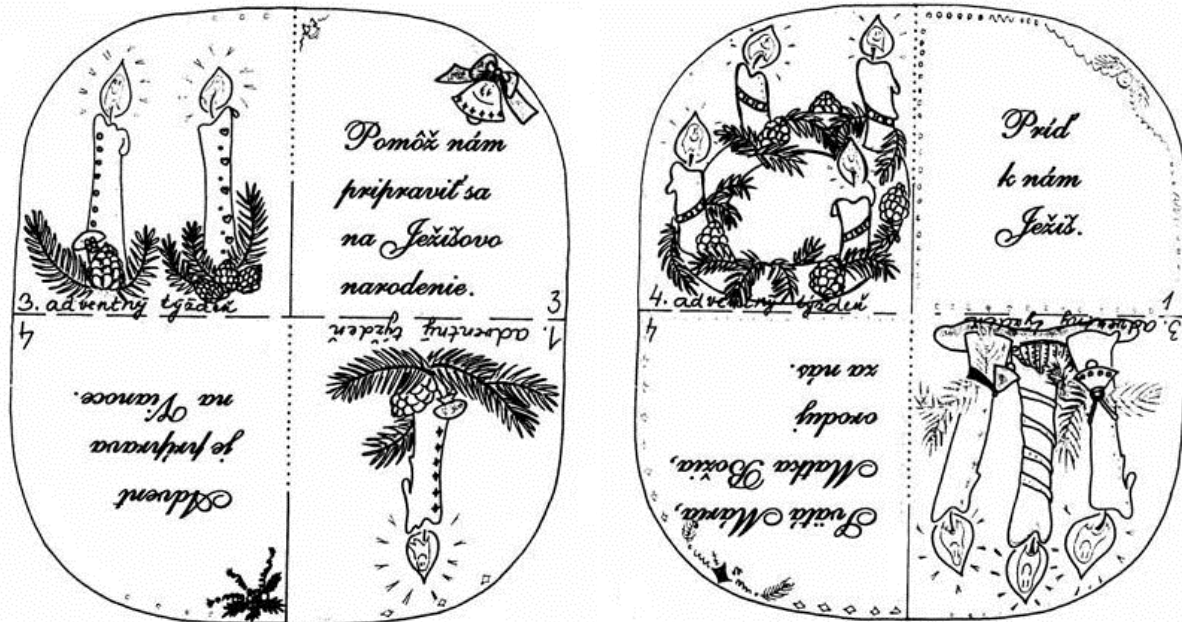 3. adventný týždeň
Pomôž nám
pripraviť sa
na Ježišovo
narodenie.
3
Advent
je príprava
na Vianoce.
4
1. adventný
týždeň
4. adventný týždeň
Príď
k nám
Ježiš.
1
Svätá Mária,
Matka Božia,
oroduj
za nás.
4
3. adventný týždeň